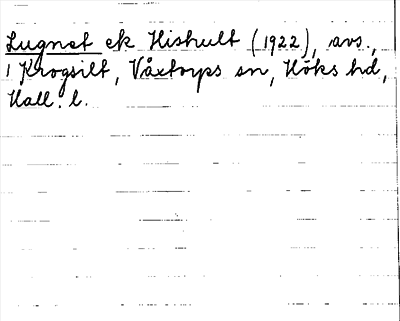 Lugnet ek Hishult (1922), avs.,
i Krogsilt, Våxtorps sn, Höks hd,
Hall. l.